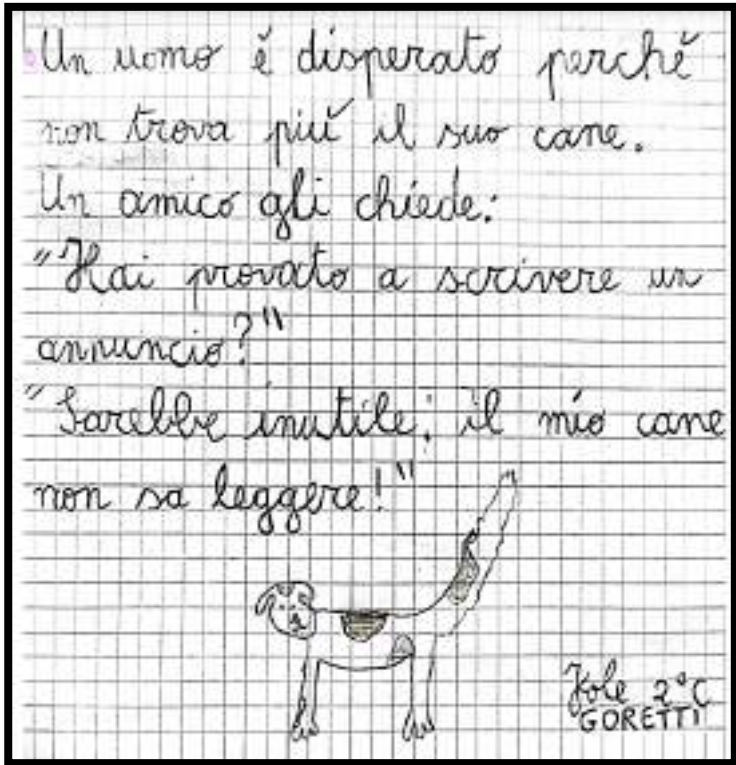 Un uomo é disperato perché
non trova piú il suo cane.
Un amico gli chiede:
"Hai provato a scrivere un
annuncio?"
"Sarebbe inutile; il mio cane
non sa leggere!"
2°C
GORETTI